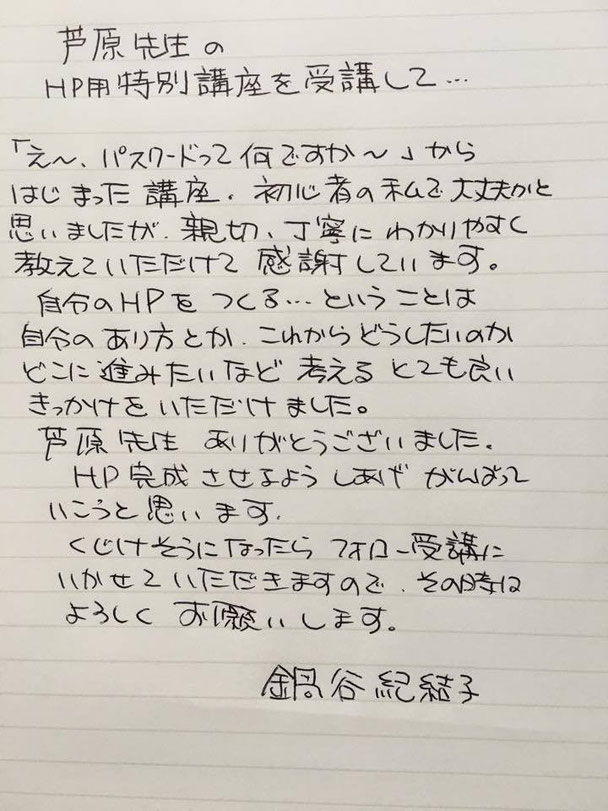 芦原先生の
HP用特別講座を受講して…
「え〜、パスワードって何ですか〜」から
はじまった講座。初心者の私で大丈夫かと
思いましたが、親切、丁寧にわかりやすく
教えていただけて感謝しています。
自分のHPをつくる…ということは
自分のあり方とか、これからどうしたいのか
どこに進みたいなど考えるとても良い
きっかけをいただけました。
芦原先生ありがとうございました。
HP完成させるようしあげがんばって
いこうと思います。
くじけそうになったらフォロー受講に
いかせていただきますので、その時は
よろしくお願いします。
鍋谷紀結子